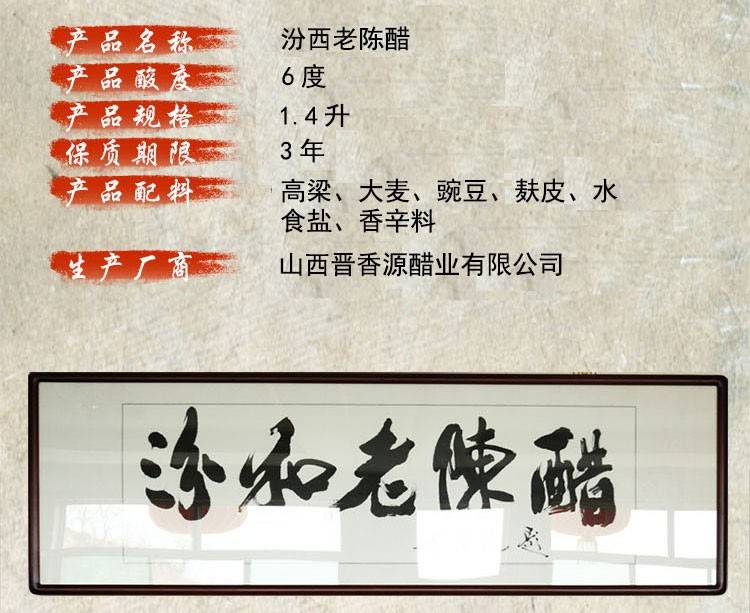 产品名称 汾西老陈醋
产品酸度 6度
产品规格 1.4升
保质期限 3年
产品配料 高粱、大麦、豌豆、麸皮、水
食盐、香辛料
生产厂商 山西晋香源醋业有限公司
汾和老陳醋